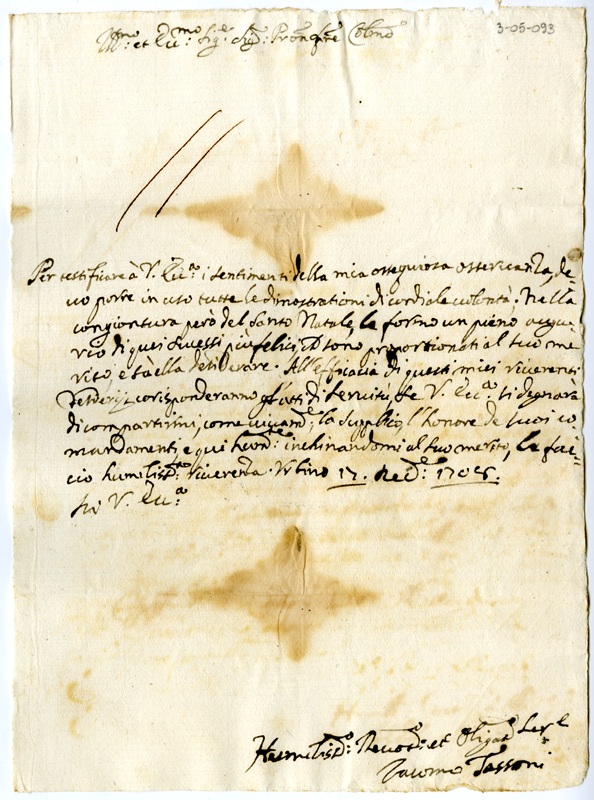 3-05-093
Ill.mo et Ecc.mo Sig.e Sig.
Per testificare à V. Ecc.a i sentimenti della mia ossequiosa osservanza, de=
vo porre in uso tutte le dimostrationi di cordiale volontà. Nella
congiontura però del Santo Natale, le formo un pieno augu=
rio di quei successi più felici, che sono proportionati al suo me
rito, e sà ella desiderare. All'efficacia di questi miei riverenti
desiderij corisponderanno gl'atti di servitù, se V. Ecc.a si degnarà
di compartirmi, come vivam.e la supplico, l'honore de suoi co
mandamenti, e qui inchinandomi al suo merito, le fac=
cio humiliss.a riverenza. Urbino 17. Xed.e:
Di V. Ecc.a
Humiliss.o Devot.o et Obligat.o Ser.e
Giacomo Tassoni